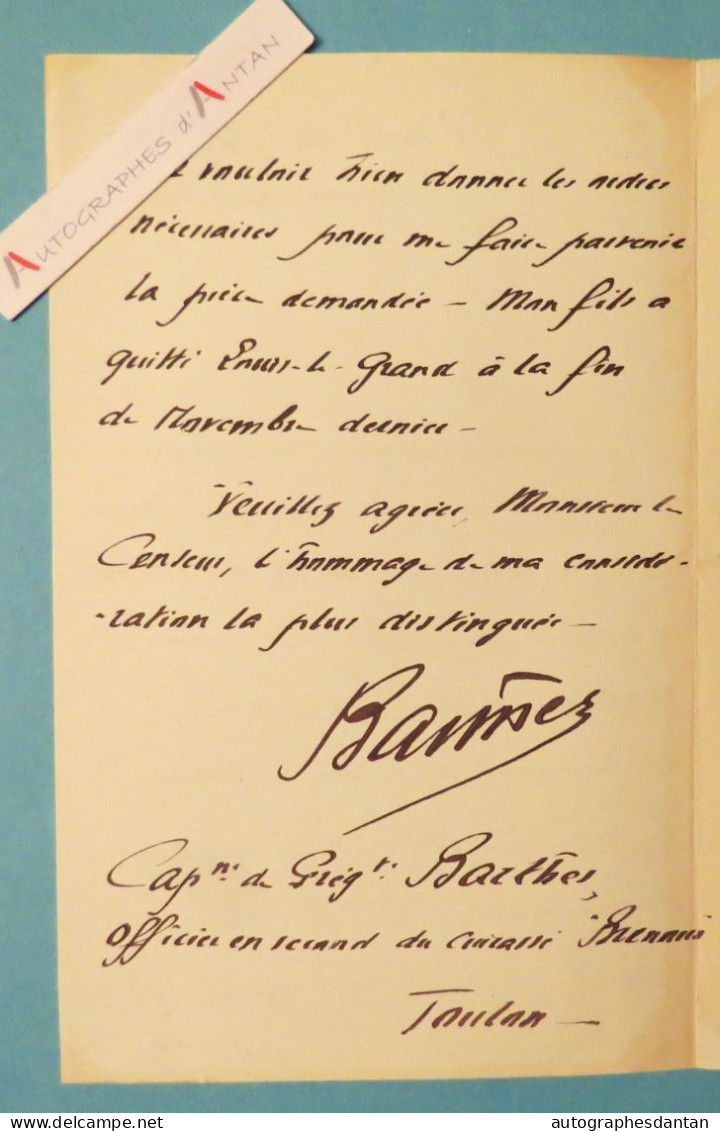 AUTOGRAPHES d'ANTAN
voulait bien donner les ordres
nécessaires pour me faire parvenir
la pièce demandée — Mon fils a
quitté Louis-le-Grand à la fin
de Novembre dernier —
Veuillez agréer, Monsieur le
Censeur, l'hommage de ma considé-
-ration la plus distinguée —
Barthes
Cap.ne de Frég.te Barthes,
Officier en second du cuirassé "Brennus"
Toulon —
delcampe.net
autographesdantan